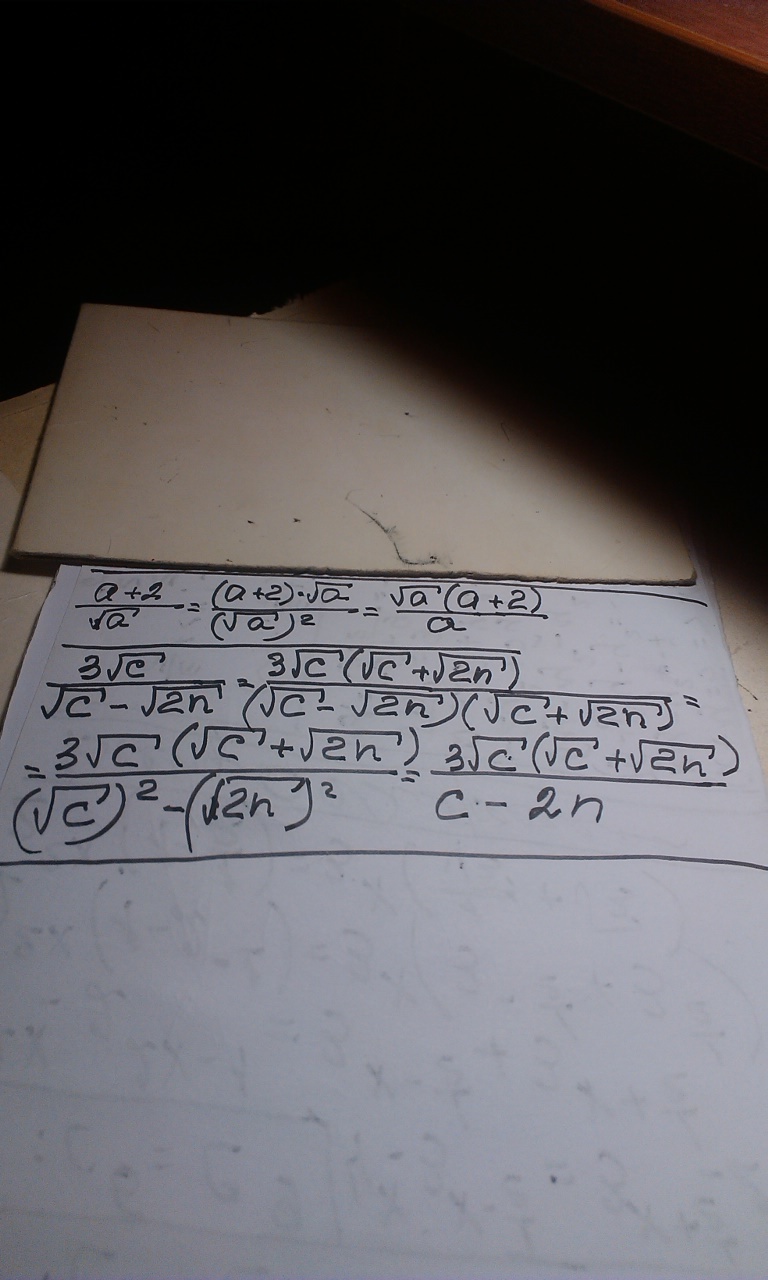 (a+2)/√a = ((a+2)·√a)/(√a)² = (√a(a+2))/a
(3√c)/(√c - √2n) = (3√c(√c+√2n))/((√c - √2n)(√c+√2n)) =
= (3√c(√c+√2n))/((√c)² - (√2n)²) = (3√c(√c+√2n))/(c - 2n)